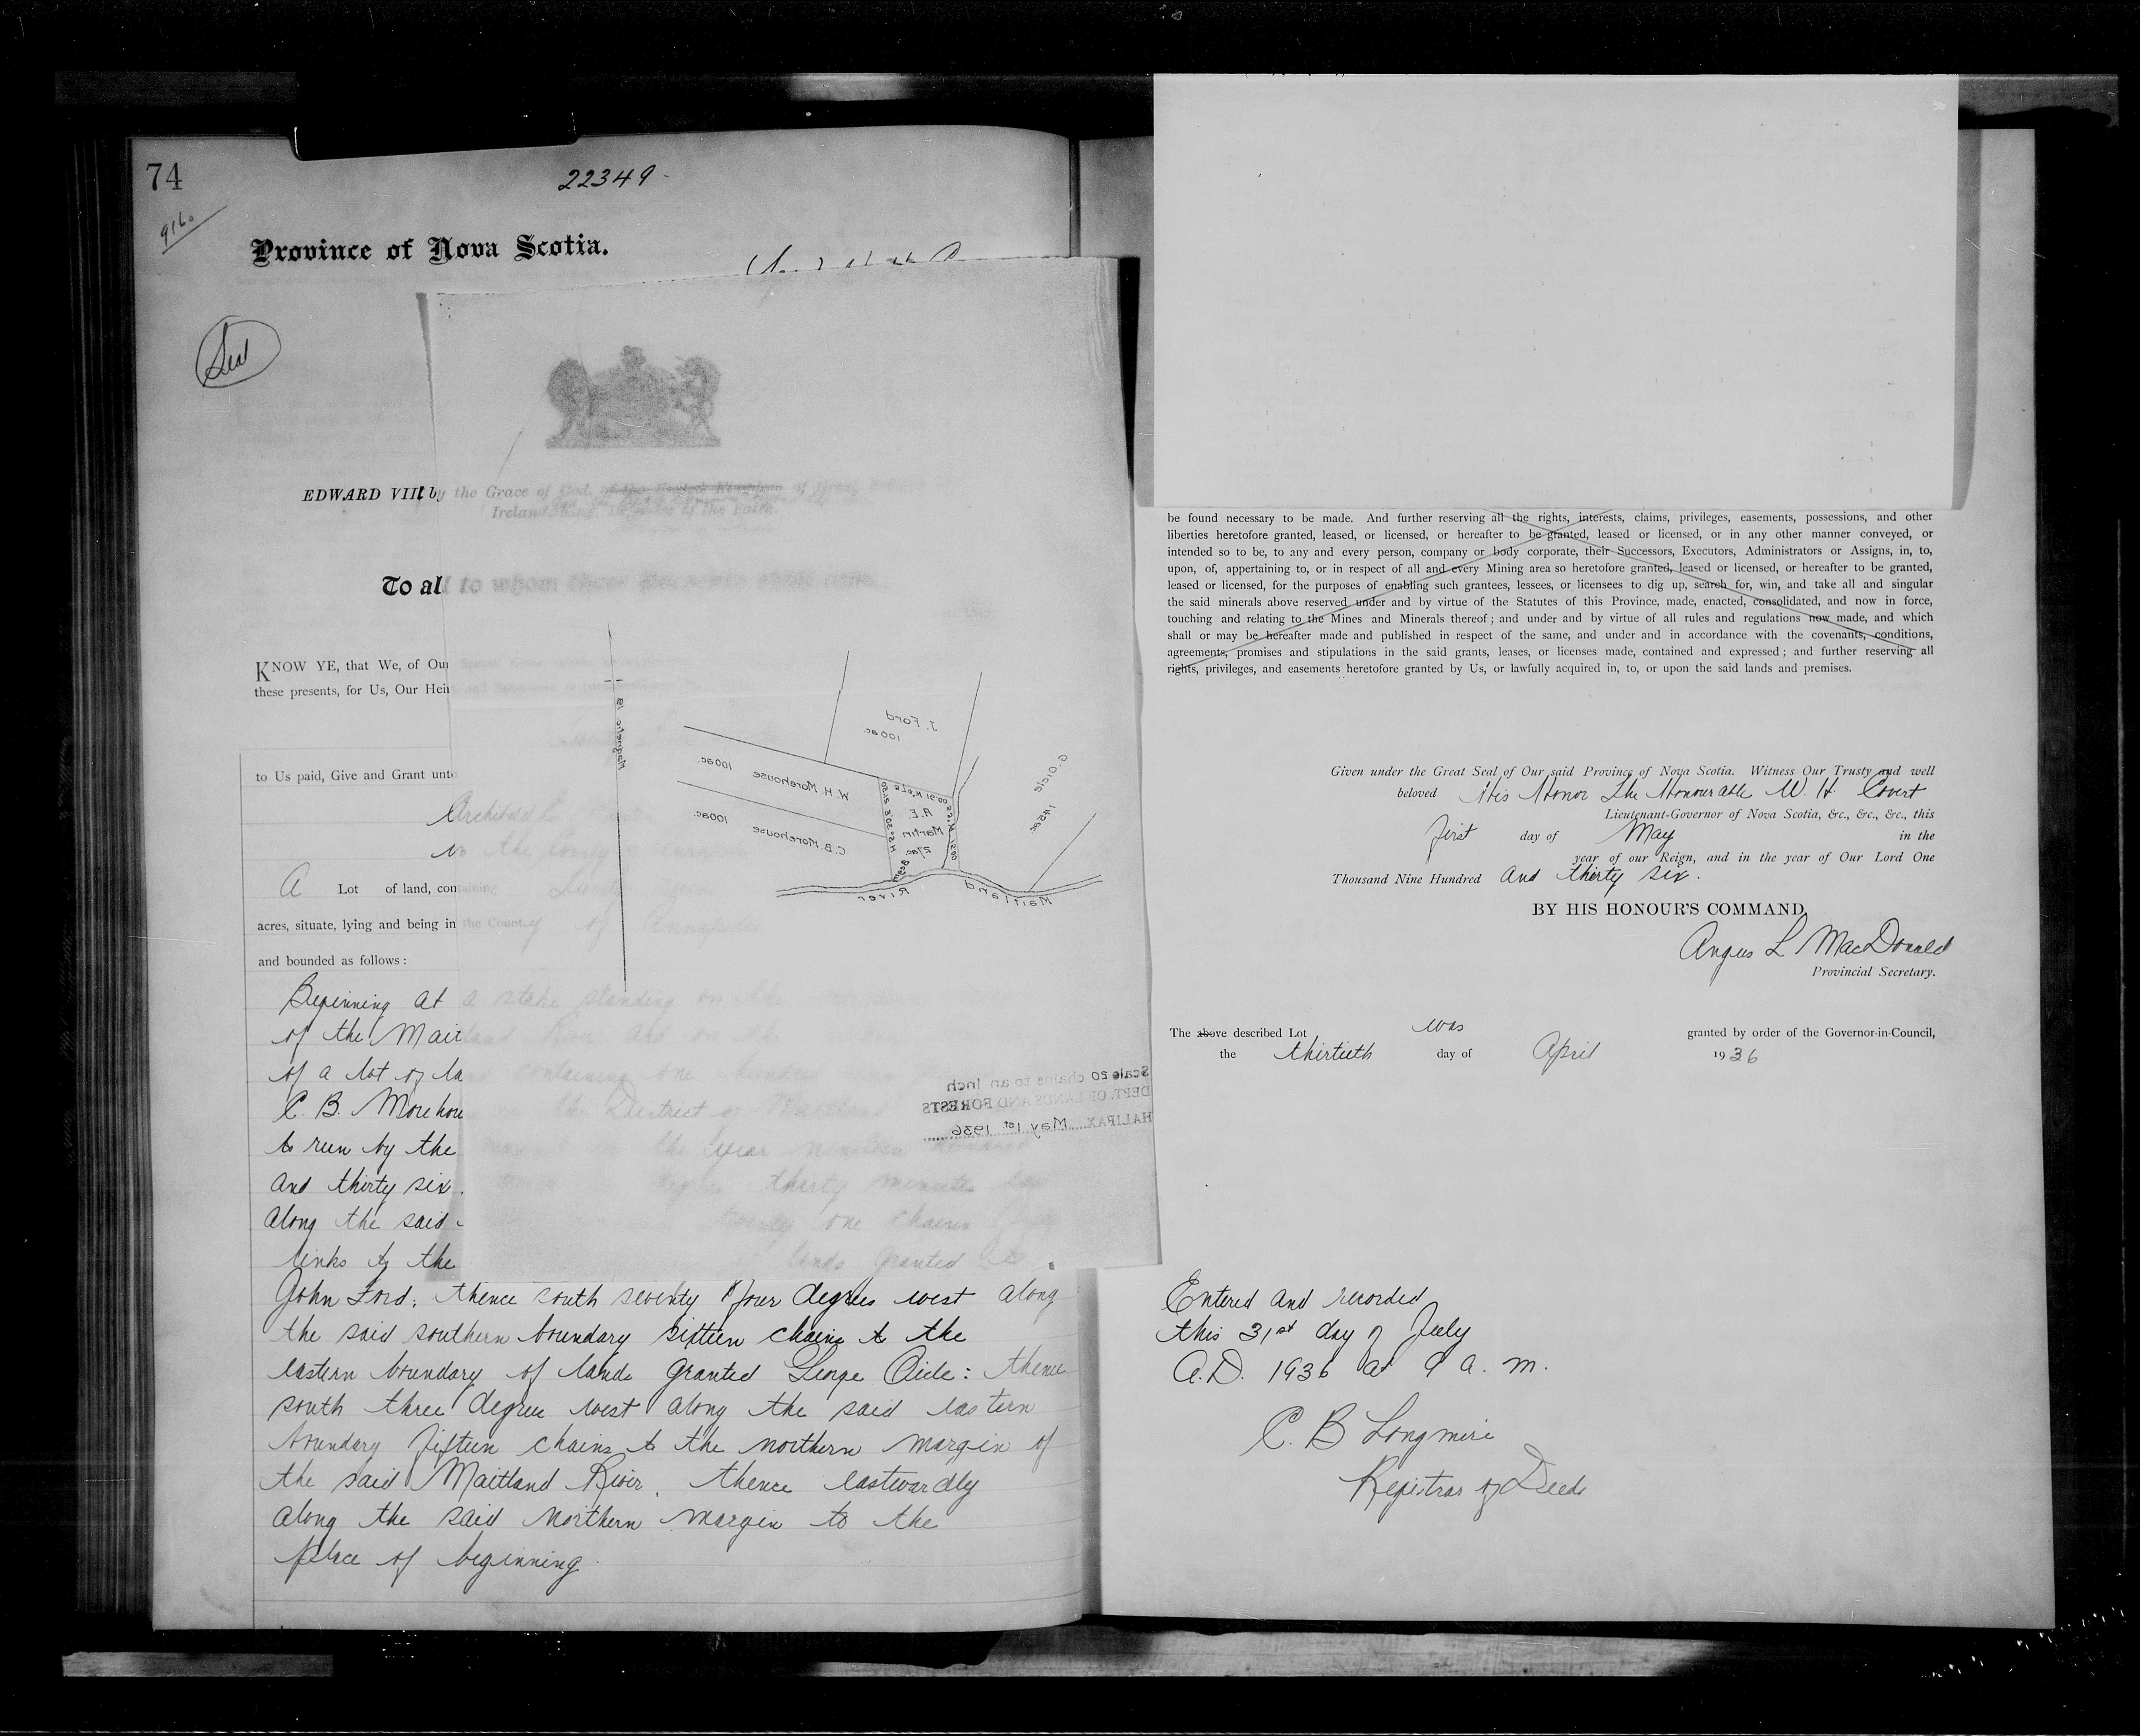 74
22349
916.
Province of Nova Scotia.
EDWARD VIII by the Grace of God, of
Ireland
To all to whom these
KNOW YE, that We, of Our Special
these presents, for Us, Our Heirs and
to Us paid, Give and Grant unto
Archibald
in the County
A Lot of land, containing
acres, situate, lying and being in the County of Annapolis
and bounded as follows:
Beginning at a stake standing on the
of the Maitland River and on the
of a lot of land containing one hundred
C. B. Morehouse the District of Maitland
to run by the the year nineteen hundred
and thirty six. thirty minutes
along the said twenty one chains
links to the lands granted to
John Ford; thence south seventy four degrees west along
the said southern boundary sixteen chains to the
eastern boundary of lands granted George Oicle: thence
south three degree west along the said eastern
boundary fifteen chains to the northern margin of
the said Maitland River, thence eastwardly
along the said northern margin to the
place of beginning.
Magnetic
J. Ford
100ac.
G. Oicle
W. H. Morehouse 100ac.
C. B. Morehouse 100ac.
A.E.
Martin
27ac.
Maitland River
Scale 20 chains to an inch
DEPT. OF LANDS AND FORESTS
HALIFAX May 1st 1936
be found necessary to be made. And further reserving all the rights, interests, claims, privileges, easements, possessions, and other
liberties heretofore granted, leased, or licensed, or hereafter to be granted, leased or licensed, or in any other manner conveyed, or
intended so to be, to any and every person, company or body corporate, their Successors, Executors, Administrators or Assigns, in, to,
upon, of, appertaining to, or in respect of all and every Mining area so heretofore granted, leased or licensed, or hereafter to be granted,
leased or licensed, for the purposes of enabling such grantees, lessees, or licensees to dig up, search for, win, and take all and singular
the said minerals above reserved under and by virtue of the Statutes of this Province, made, enacted, consolidated, and now in force,
touching and relating to the Mines and Minerals thereof; and under and by virtue of all rules and regulations now made, and which
shall or may be hereafter made and published in respect of the same, and under and in accordance with the covenants, conditions,
agreements, promises and stipulations in the said grants, leases, or licenses made, contained and expressed; and further reserving all
rights, privileges, and easements heretofore granted by Us, or lawfully acquired in, to, or upon the said lands and premises.
Given under the Great Seal of Our said Province of Nova Scotia. Witness Our Trusty and well
beloved His Honor The Honourable W. H. Covert
Lieutenant-Governor of Nova Scotia, &c., &c., &c., this
first day of May in the
year of our Reign, and in the year of Our Lord One
Thousand Nine Hundred and thirty six.
BY HIS HONOUR'S COMMAND,
Angus L MacDonald
Provincial Secretary.
The above described Lot was granted by order of the Governor-in-Council,
the thirtieth day of April 1936
Entered and recorded
this 31st day of July
A.D. 1936 at 9 a.m.
C. B Longmire
Registrar of Deeds